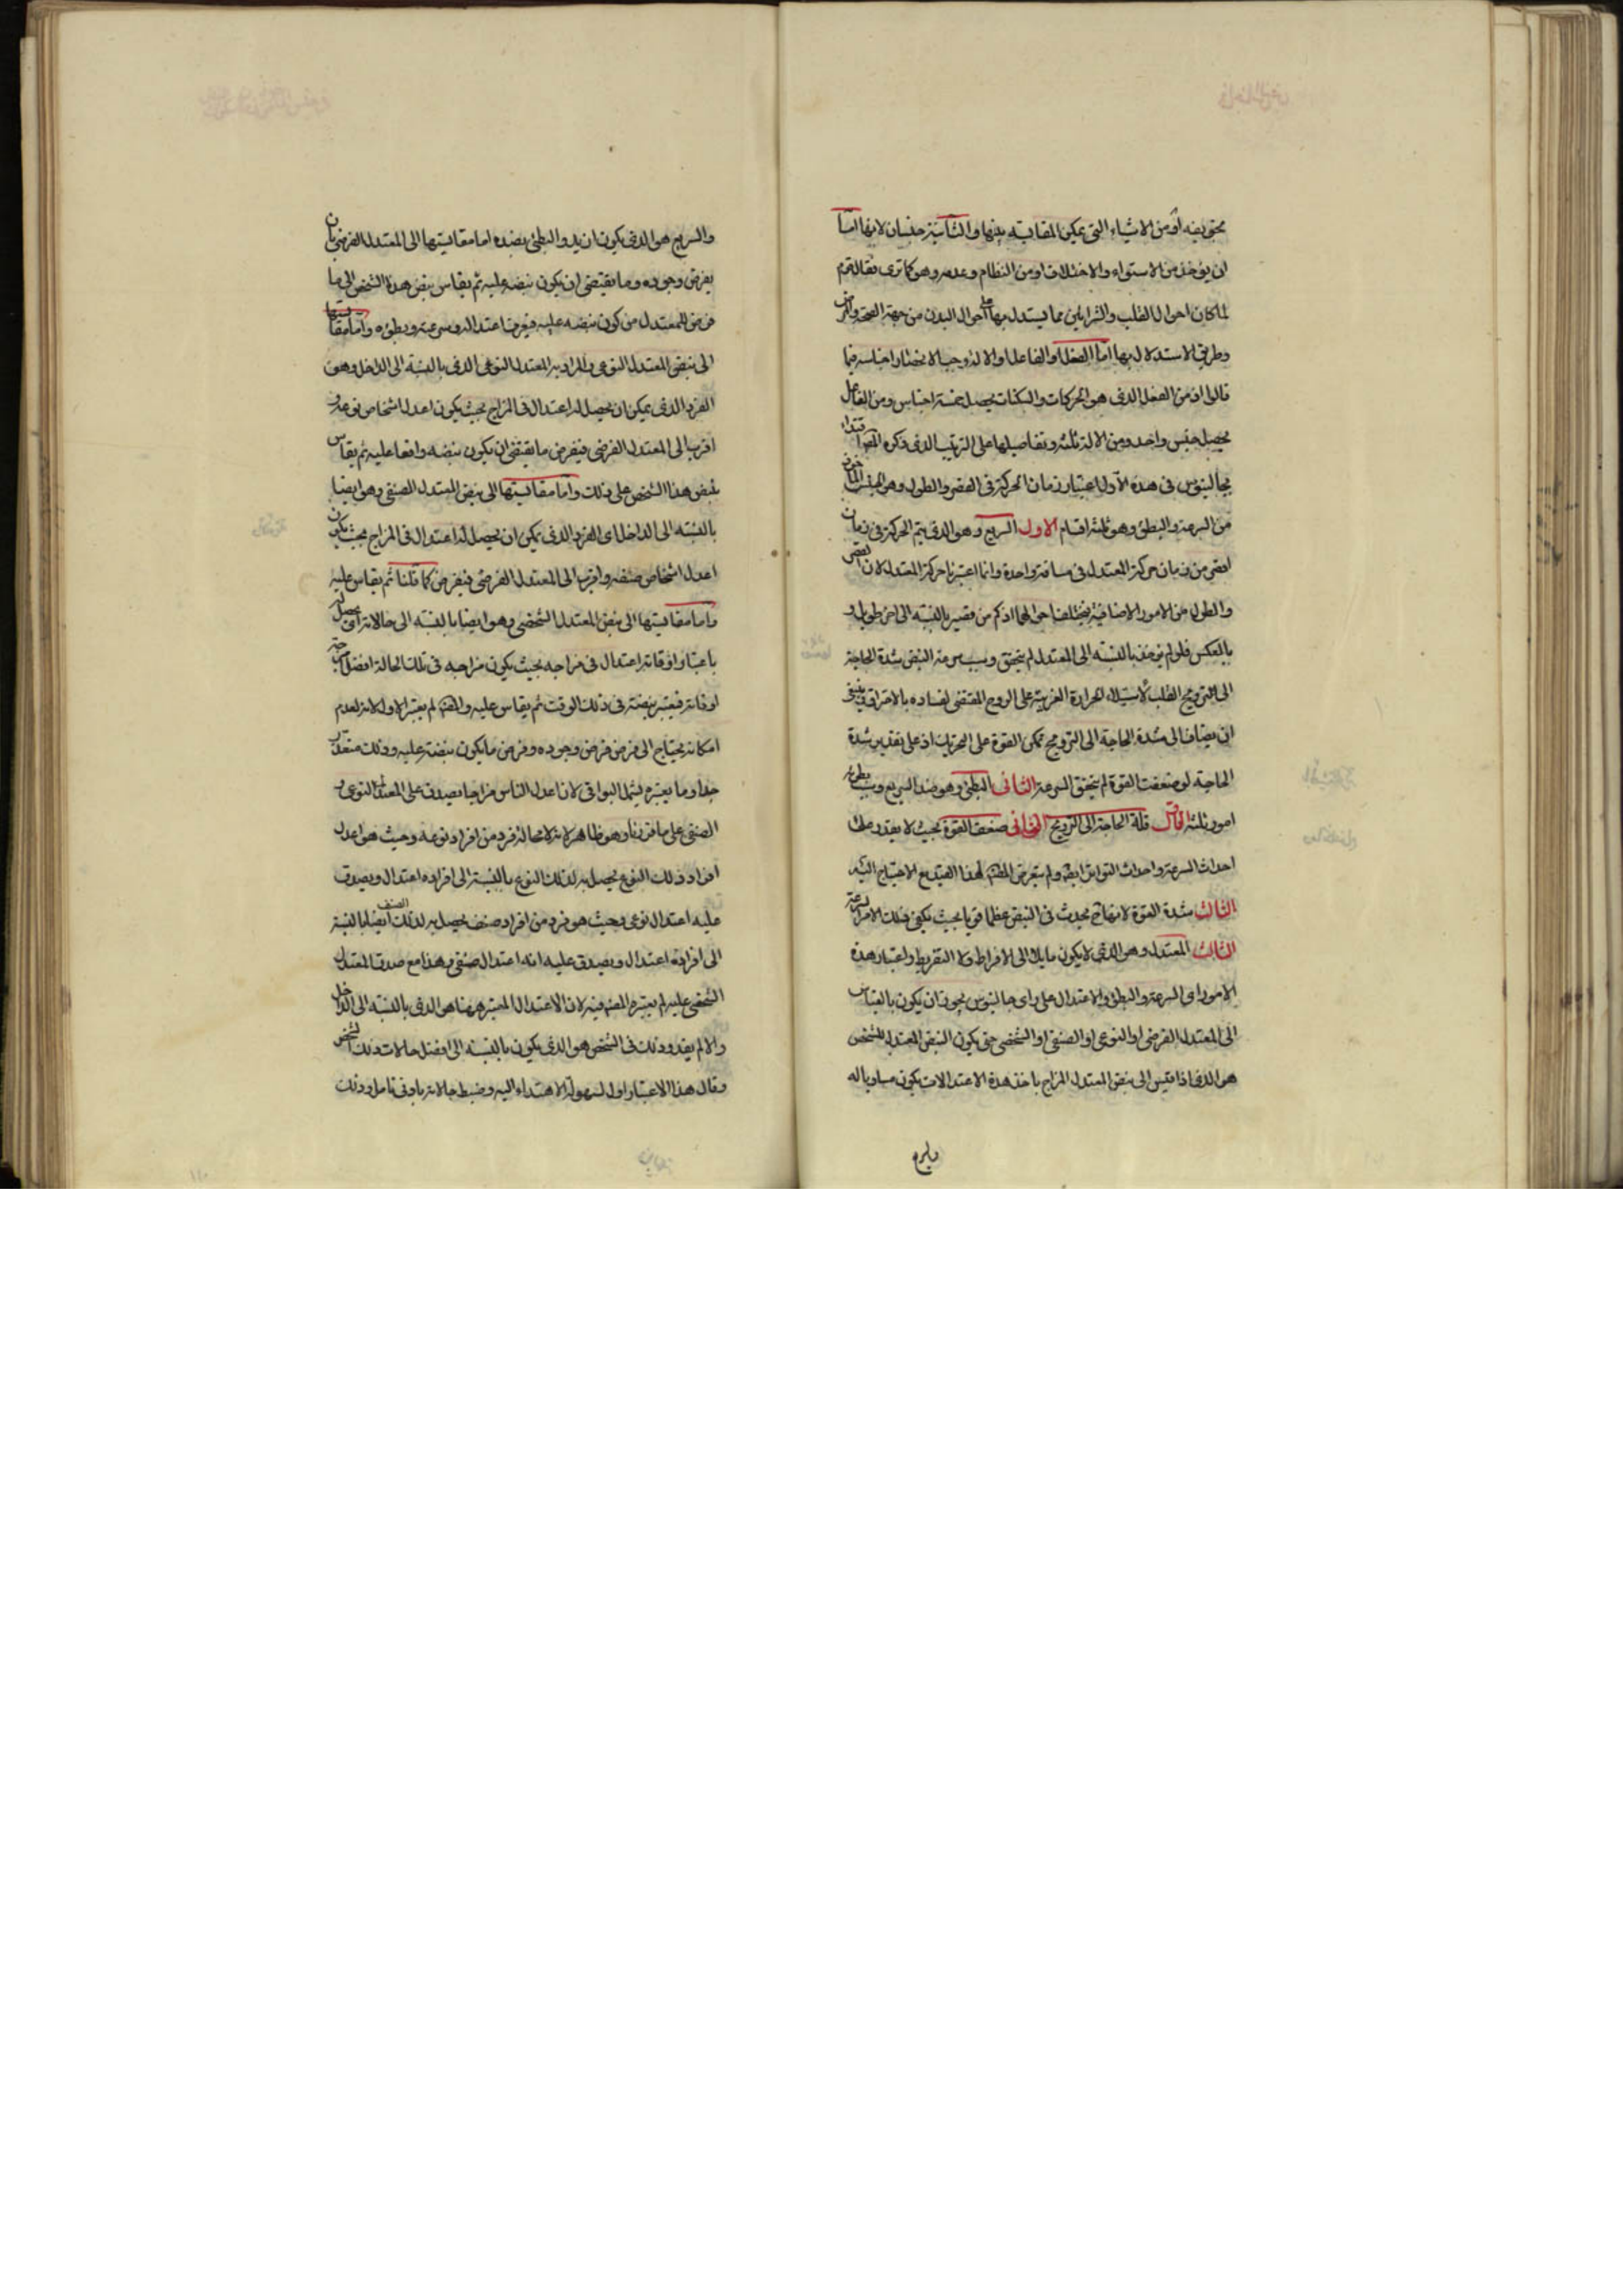 يحتويه او من الاشياء التي يمكن المقايسة بينها والثانية جنسان لانها اما
ان يؤخذ من الاستواء والاختلاف او من النظام وعدمه وهو كما ترى وقال قوم
لما كان احوال القلب والشرايين مما يستدل بها على احوال البدن من جهة الصحة والمرض
وطريق الاستدلال بها اما الفعل او الفاعل او الالة وجب الانحصار اجناسه فيما
قالوا اذ من الفعل الذي هو الحركات والسكنات يحصل خمسة اجناس ومن الفاعل
يحصل جنس واحد ومن الالة ثلثة وتفاصيلها على الترتيب الذي ذكره المص اقتداء
بجالينوس في هذه الاول اعتبار زمان الحركة في القصر والطول وهو الجنس الماخوذ
من السرعة والبطئ وهو ثلثة اقسام الاول السريع وهو الذي يتم الحركة في زمان
اقصر من زمان حركة المعتدل في مسافة واحدة وانما اعتبرنا حركة المعتدل لان القصر
والطول من الامور الاضافية يختلف احوالهما اذ كم من قصير بالنسبة الى اخر طويل و
بالعكس فلو لم يؤخذ بالنسبة الى المعتدل لم يتحقق وسبب سرعة النبض شدة الحاجة
الى الترويح القلب لاستيلاء الحرارة الغريبة على الروح المقتضى لفساده بالاحتراق وينبغي
ان يضاف الى شدة الحاجة الى الترويح تمكن القوة على التحريك اذ على تقدير شدة
الحاجة لو ضعفت القوة لم يتحقق السرعة الثاني البطئ وهو ضد السريع وسبب بطوئه
امور ثلثة قلة الحاجة الى الترويح الثاني ضعف القوة بحيث لا يقدر على
احداث السرعة واحداث التواتر ايضا ولم يتعرض المص لهذا القيد مع الاحتياج اليه
الثالث شدة القوة لانها ح يحدث في النبض عظما قويا بحيث يكفي ذلك الامر السرعة
الثالث المعتدل وهو الذي لا يكون مايلا الى الافراط ولا التفريط واعتبار هذه
الامور اي السرعة والبطئ والاعتدال على راى جالينوس يجوز ان يكون بالقياس
الى المعتدل الفرضي او النوعي او الصنفي او الشخصي حتى يكون النبض المعتدل للشخص
هو الذي اذا قيس الى نبض المعتدل المزاج باخذ هذه الاعتدالات يكون مساويا له
والسريع
والسريع هو الذي يكون ازيد والبطئ بضده اما مقايستها الى المعتدل الفرضي بان
يفرض وجوده وما يقتضى ان يكون نبضه عليه ثم يقاس نبض هذا الشخص الى ما
فرض للمعتدل من كون نبضه عليه فيعرف اعتداله وسرعته وبطئه واما مقايستها
الى نبض المعتدل النوعي والمراد به المعتدل النوعي الذي بالنسبة الى الداخل وهو
الفرد الذي يمكن ان يحصل له اعتدال في المزاج بحيث يكون اعدل اشخاص نوعه و
اقرب الى المعتدل الفرضي فيفرض ما يقتضى ان يكون نبضه واقعا عليه ثم يقاس
نبض هذا الشخص على ذلك واما مقايستها الى نبض المعتدل الصنفي وهو ايضا
بالنسبة الى الداخل اى الفرد الذي يمكن ان يحصل له اعتدال في المزاج بحيث يكون
اعدل اشخاص صنفه واقرب الى المعتدل الفرضي فيفرض كما قلنا ثم يقاس عليه
واما مقايستها الى نبض المعتدل الشخصي وهو ايضا بالنسبة الى حالاته اى يحصل له
باعتبار اوقاته اعتدال في مزاجه بحيث يكون مزاجه في تلك الحالة افضل
اوقاته فيعتبر نبضه في ذلك الوقت ثم يقاس عليه والمص لم يعتبر الاول لانه لعدم
امكانه يحتاج الى فرض فرض وجوده وفرض ما يكون نبضه عليه وذلك متعذر
جدا وما يعتبره يشمل البواقي لان اعدل الناس مزاجا يصدق على المعتدل النوعي و
الصنفي على ما قررنا وهو ظاهر لانه لا محالة فرد من افراد نوعه وحيث هو اعدل
افراد ذلك النوع يحصل به لذلك النوع بالنسبة الى افراده اعتدال ويصدق
عليه اعتدال نوعي وحيث هو فرد من افراد صنف يحصل به لذلك الصنف ايضا بالنسبة
الى افراده اعتدال ويصدق عليه انه اعتدال صنفي وهذا مع صدق المعتدل
الشخصي عليه لم يعتبره المص فيه لان الاعتدال المعتبر ههنا هو الذي بالنسبة الى الداخل
والالم يقدر وذلك في الشخص هو الذي يكون بالنسبة الى افضل حالات ذلك الشخص
وقال هذا الاعتبار اولى لسهولة الاهتداء اليه وضبط حالاته باونى تامل وذلك